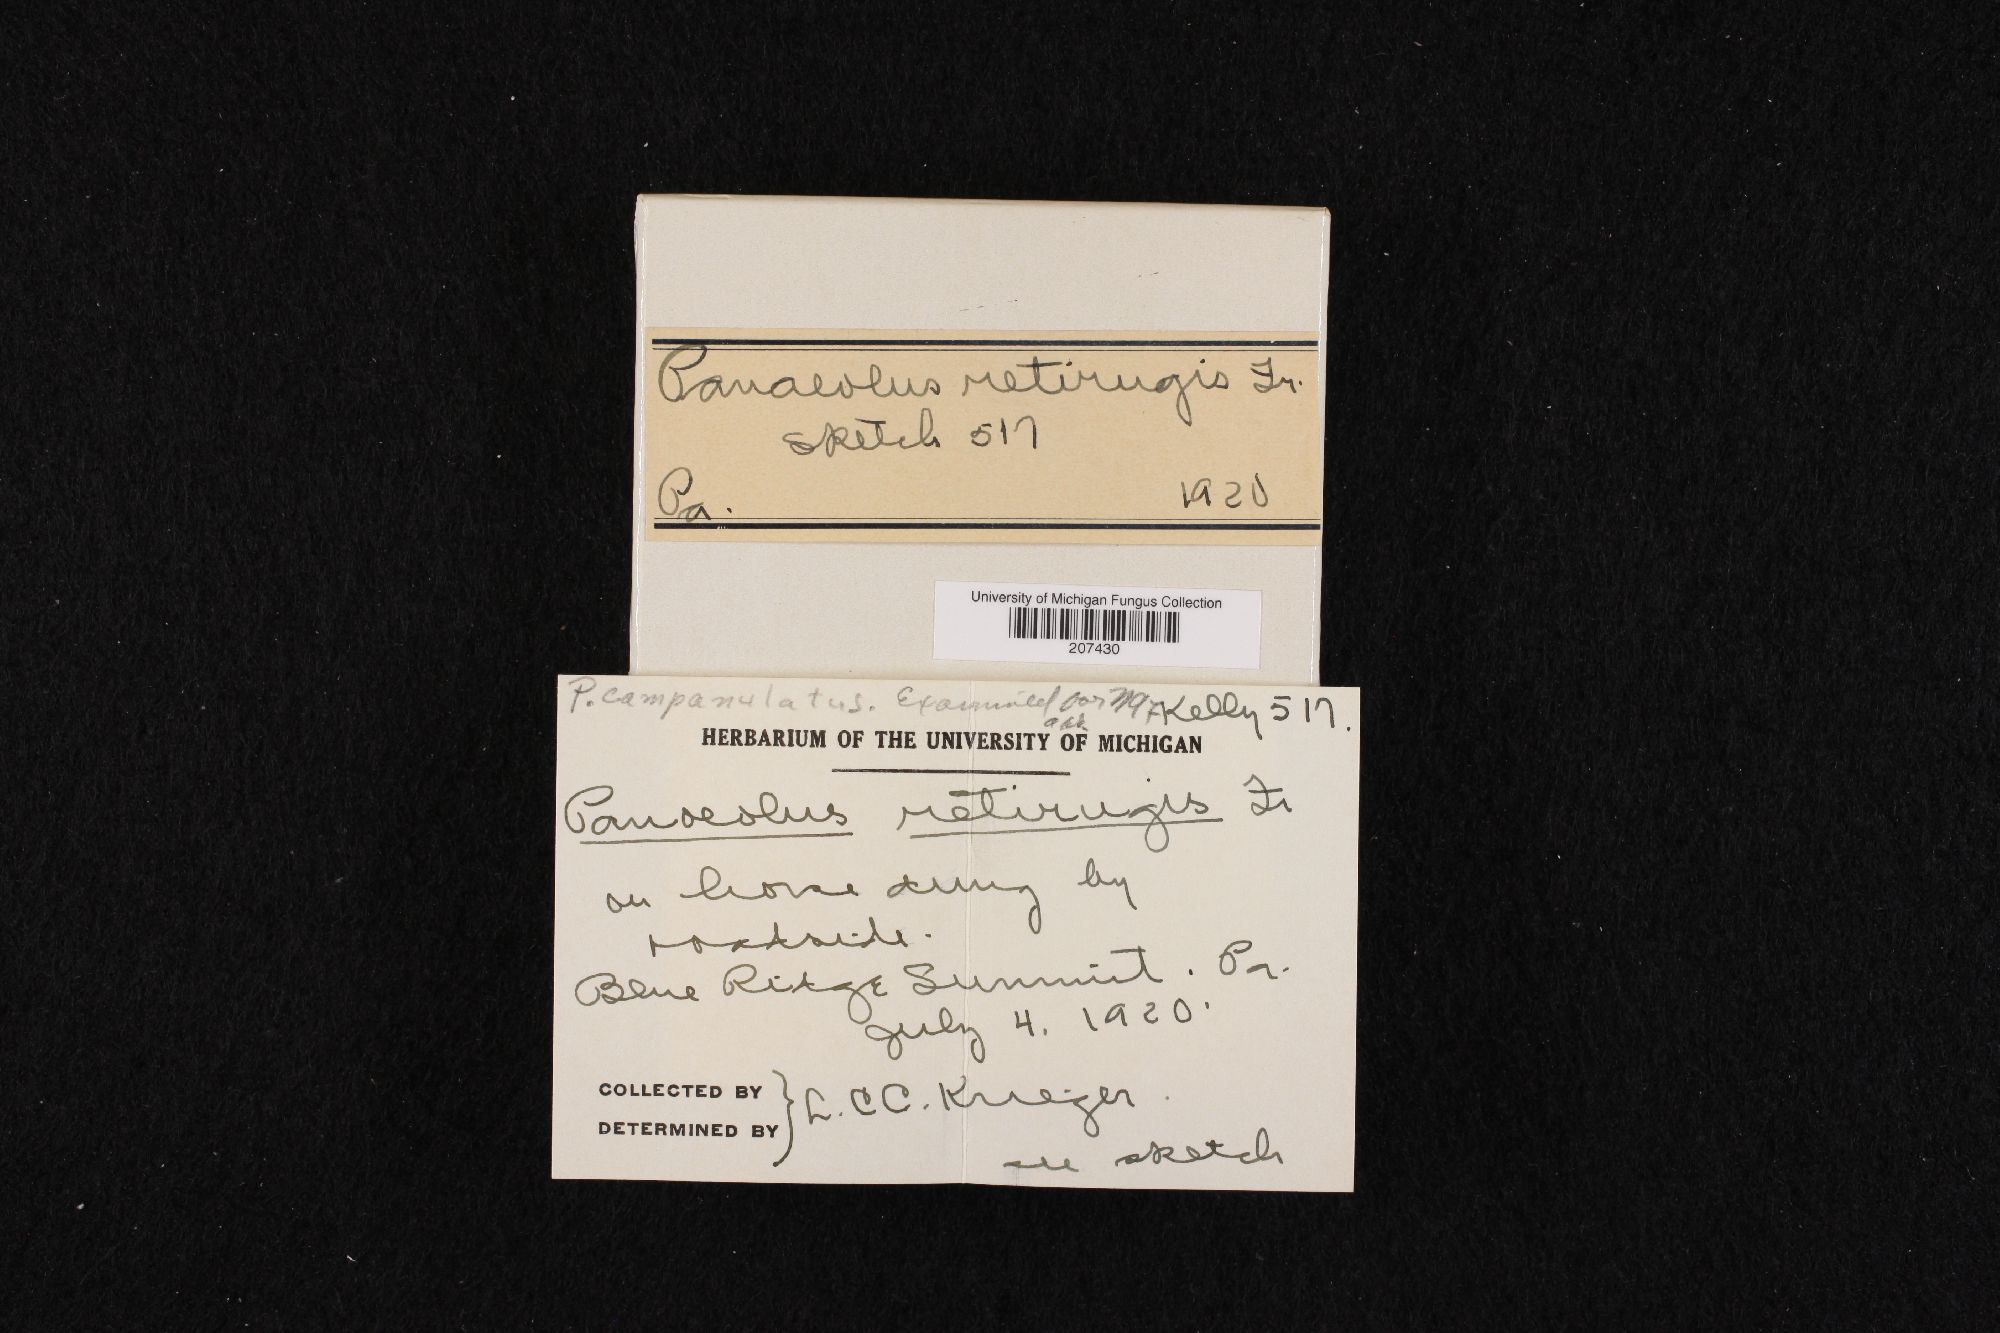 Panaeolus retirugis Fr.
sketch 517
Pa. 1920
University of Michigan Fungus Collection
207430
P. campanulatus. Examined Kelly 517.
HERBARIUM OF THE UNIVERSITY OF MICHIGAN
Panaeolus retirugis Fr
on horse dung by
roadside.
Blue Ridge Summit. Pa.
July 4. 1920.
COLLECTED BY
DETERMINED BY } L.C.C. Krieger.
see sketch